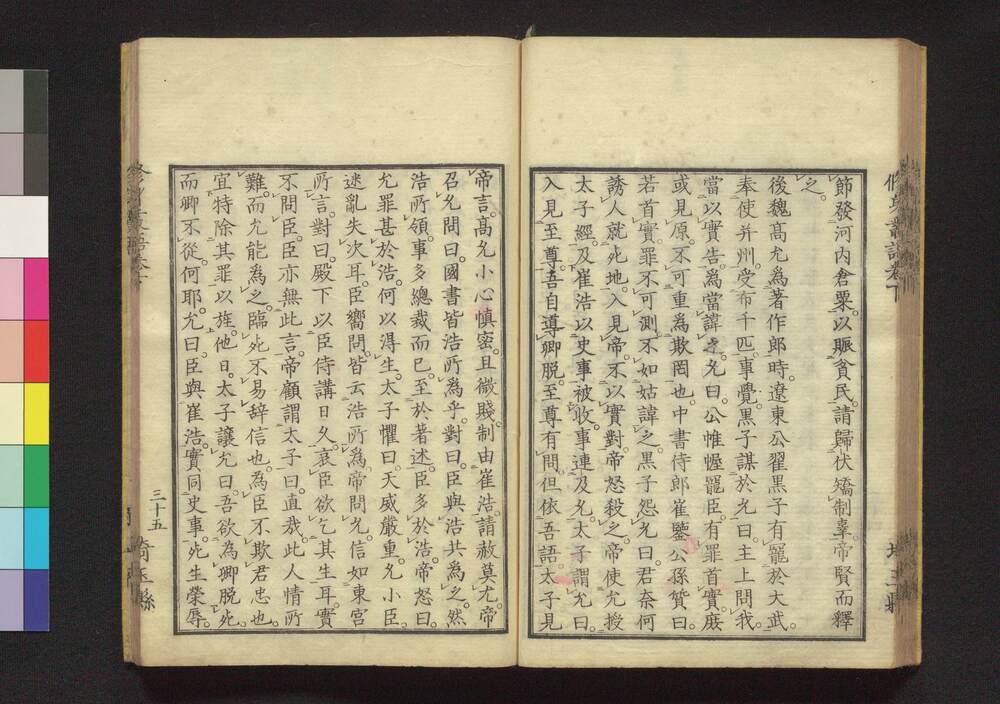 節發河内倉粟。以賑貧民。請歸伏矯制辜。帝賢而釋
之。
後魏高允爲著作郎時。遼東公翟黒子有寵於大武。
奉使并州。受布千匹。事覺。黒子謀於允曰。主上問我。
當以實告。爲當諱之。允曰。公帷幄寵臣。有罪首實。庶
或見原。不可重爲欺罔也。中書侍郎崔鑒公孫質曰。
若首實。罪不可測。不如姑諱之。黒子怨允曰。君奈何
誘人就死地。入見帝。不以實對。帝怒殺之。帝使允授
太子經。及崔浩以史事被收。事連及允。太子謂允曰。
入見至尊。吾自導卿。脱至尊有問。但依吾語。太子見
帝言。高允小心慎密。且微賤。制由崔浩。請赦其死。帝
召允問曰。國書皆浩所爲乎。對曰。臣與浩共爲之。然
浩所領事多。總裁而已。至於著述。臣多於浩。帝怒曰。
允罪甚於浩。何以得生。太子懼曰。天威嚴重。允小臣。
迷亂失次耳。臣嚮問。皆云浩所爲。帝問允。信如東宮
所言。對曰。殿下以臣侍講日久。哀臣欲乞其生耳。實
不問臣。臣亦無此言。帝顧謂太子曰。直哉。此人情所
難。而允能爲之。臨死不易辞信也。爲臣不欺君忠也。
宜特除其罪以旌。他日。太子讓允曰。吾欲爲卿脱死。
而卿不從。何耶。允曰。臣與崔浩。實同史事。死生榮辱。
三十五
埼玉縣